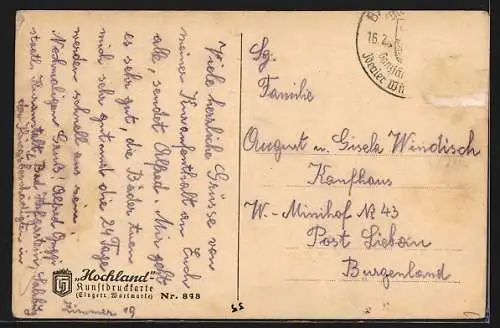 Viele herzliche Grüsse von
meiner Kuraufenthalt an Euch
alle, sendet Alfred. Mir geht
es sehr gut, die Bäder tuen
mich sehr gut und die 24 Tage
werden schnell aus sein.
Nochmaligen Gruß, Alfred
Kuranstalt, Bad Hofgastein,
der Kriegsbeschädigten in
Zimmer 19
"Hochland"
Kunstdruckkarte
(Eingetr. Wortmarke) Nr. 848
16.2.
Sg.
Familie
August u. Gisela Windisch
Kaufhaus
W.-Minihof № 43
Post Liebing
Burgenland